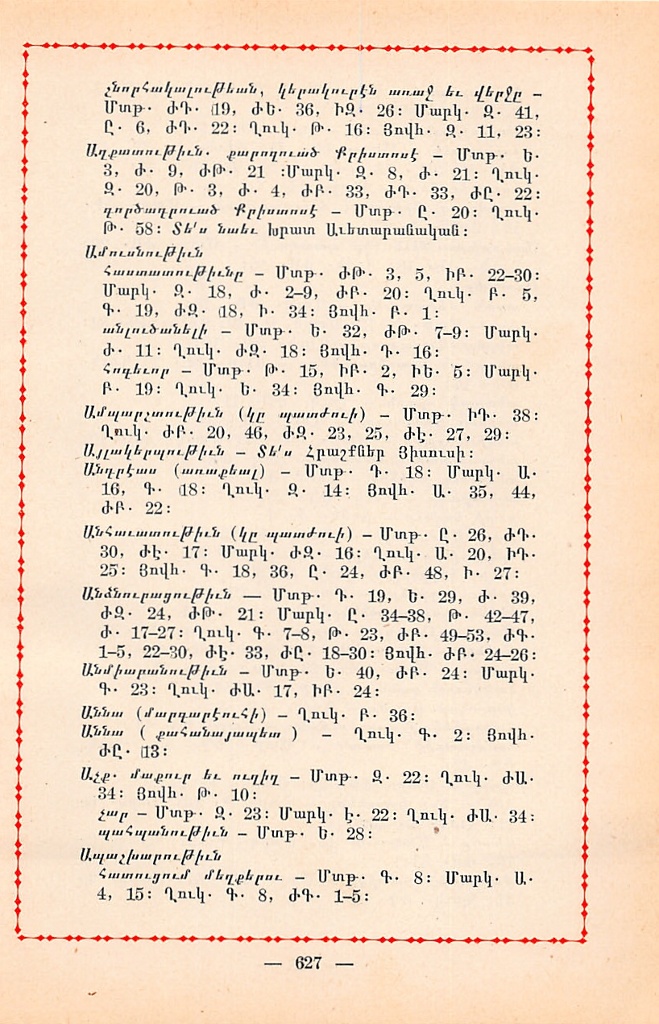 շնորհակալութեան, կերակուրէն առաջ եւ վերջը –
Մտթ. ԺԴ. 19, ԺԵ. 36, ԻԶ. 26: Մարկ. Զ. 41,
Ը. 6, ԺԴ. 22: Ղուկ. Թ. 16: Յովհ. Զ. 11, 23:
Աղքատութիւն. քարոզուած Քրիստոսէ – Մտթ. Ե.
3, Ժ. 9, ԺԹ. 21 :Մարկ. Զ. 8, Ժ. 21: Ղուկ.
Զ. 20, Թ. 3, Ժ. 4, ԺԲ. 33, ԺԴ. 33, ԺԸ. 22:
գործադրուած Քրիստոսէ – Մտթ. Ը. 20: Ղուկ.
Թ. 58: Տե՛ս նաեւ Խրատ Աւետարանական:
Ամուսնութիւն
հաստատութիւնը – Մտթ. ԺԹ. 3, 5, ԻԲ. 22–30:
Մարկ. Զ. 18, Ժ. 2–9, ԺԲ. 20: Ղուկ. Բ. 5,
Գ. 19, ԺԶ. 18, Ի. 34: Յովհ. Բ. 1:
անլուծանելի – Մտթ. Ե. 32, ԺԹ. 7–9: Մարկ.
Ժ. 11: Ղուկ. ԺԶ. 18: Յովհ. Դ. 16:
հոգեւոր – Մտթ. Թ. 15, ԻԲ. 2, ԻԵ. 5: Մարկ.
Բ. 19: Ղուկ. Ե. 34: Յովհ. Գ. 29:
Ամպարշտութիւն (կը պատժուի) – Մտթ. ԻԴ. 38:
Ղուկ. ԺԲ. 20, 46, ԺԶ. 23, 25, ԺԷ. 27, 29:
Այլակերպութիւն – Տե՛ս Հրաշքներ Յիսուսի:
Անդրէաս (առաքեալ) – Մտթ. Դ. 18: Մարկ. Ա.
16, Գ. 18: Ղուկ. Զ. 14: Յովհ. Ա. 35, 44,
ԺԲ. 22:
Անհաւատութիւն (կը պատժուի) – Մտթ. Ը. 26, ԺԴ.
30, ԺԷ. 17: Մարկ. ԺԶ. 16: Ղուկ. Ա. 20, ԻԴ.
25: Յովհ. Գ. 18, 36, Ը. 24, ԺԲ. 48, Ի. 27:
Անձնուրացութիւն — Մտթ. Դ. 19, Ե. 29, Ժ. 39,
ԺԶ. 24, ԺԹ. 21: Մարկ. Ը. 34–38, Թ. 42–47,
Ժ. 17–27: Ղուկ. Գ. 7–8, Թ. 23, ԺԲ. 49–53, ԺԳ.
1–5, 22–30, ԺԷ. 33, ԺԸ. 18–30: Յովհ. ԺԲ. 24–26:
Անմիաբանութիւն – Մտթ. Ե. 40, ԺԲ. 24: Մարկ.
Գ. 23: Ղուկ. ԺԱ. 17, ԻԲ. 24:
Աննա (մարգարէուհի) – Ղուկ. Բ. 36:
Աննա ( քահանայապետ ) – Ղուկ. Գ. 2: Յովհ.
ԺԸ. 13:
Աչք. մաքուր եւ ուղիղ – Մտթ. Զ. 22: Ղուկ. ԺԱ.
34: Յովհ. Թ. 10:
չար – Մտթ. Զ. 23: Մարկ. Է. 22: Ղուկ. ԺԱ. 34:
պահպանութիւն – Մտթ. Ե. 28:
Ապաշխարութիւն
հատուցում մեղքերու – Մտթ. Գ. 8: Մարկ. Ա.
4, 15: Ղուկ. Գ. 8, ԺԳ. 1–5:
— 627 —